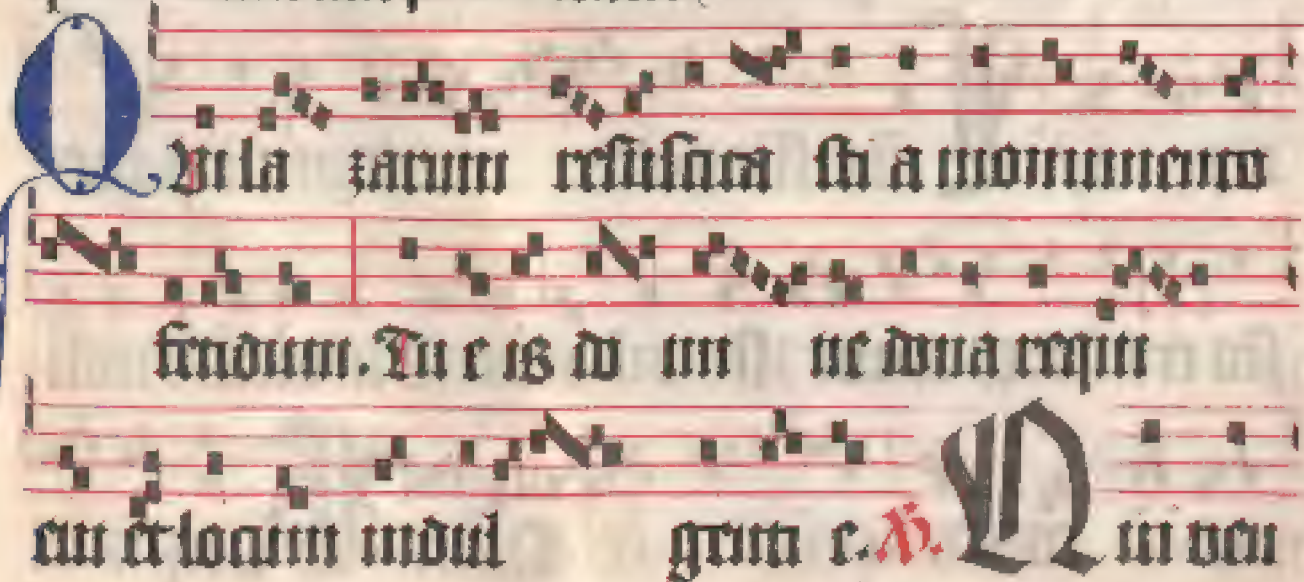 QUi la zarum resuscita sti a monumento
fetidum. Tu e is do mi ne dona requi
em et locum indul genti e. V. Qui ven